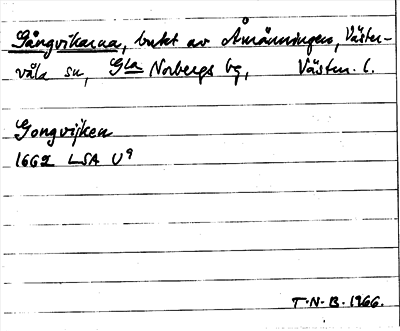 Gångvikarna, bukt av Åmänningen, Väster-
våla sn, Gla Norbergs bg, Västm. l.
Gongvijken
1662 LSA U9
T.N.B. 1966.